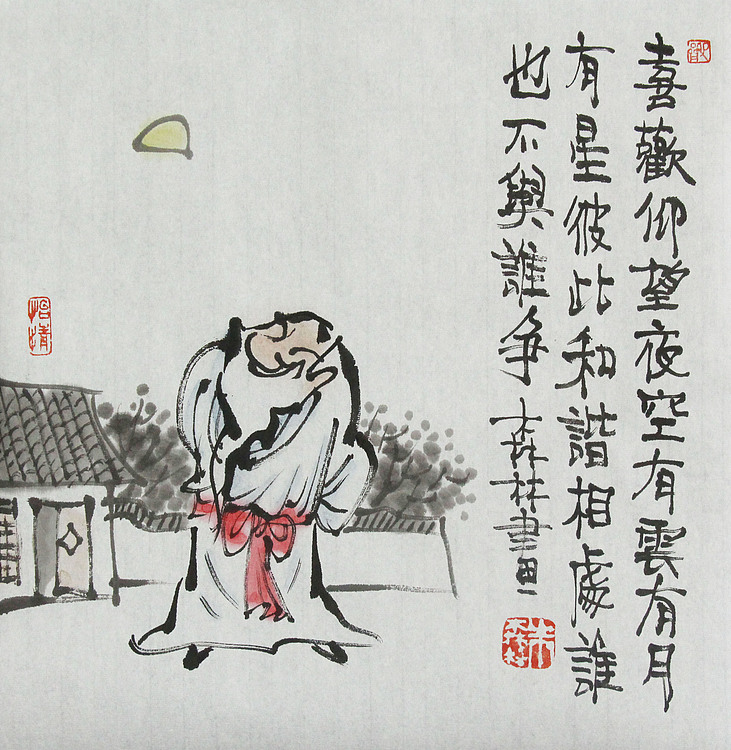 喜歡仰望夜空有雲有月
有星彼此和諧相處誰
也不與誰爭 森林畫
怡情